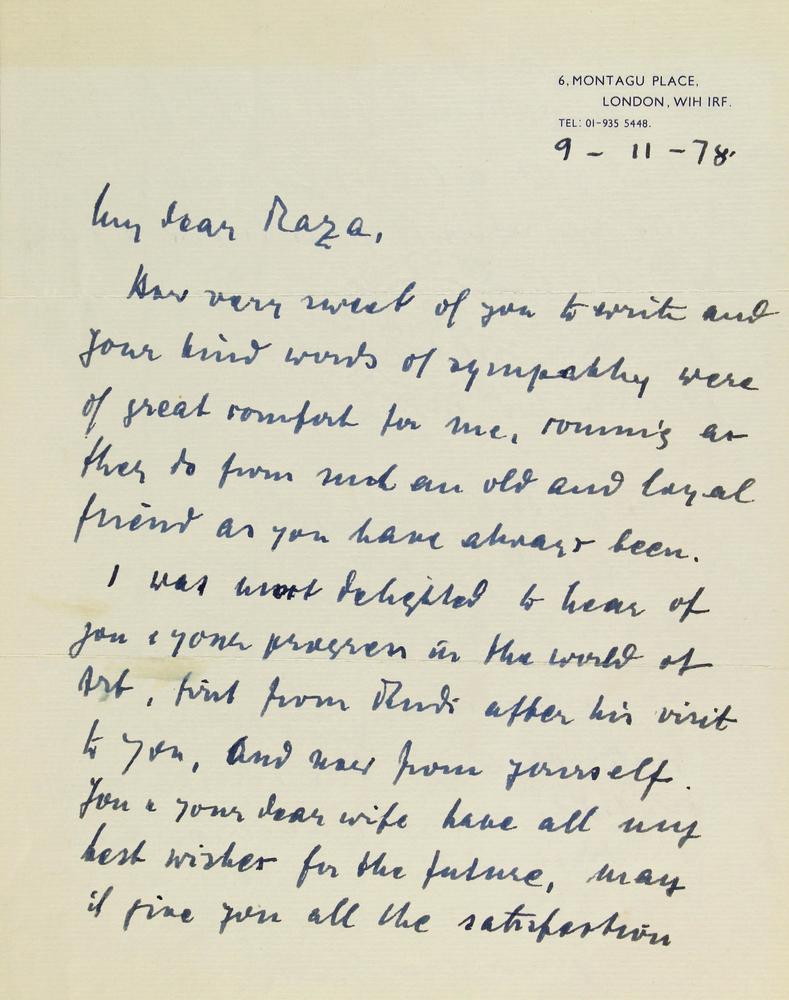 6, MONTAGU PLACE,
LONDON, W1H 1RF.
TEL: 01-935 5448.
9 - 11 - 78.
My dear Raza,
How very sweet of you to write and
your kind words of sympathy were
of great comfort for me, coming as
they do from such an old and loyal
friend as you have always been.
I was most delighted to hear of
you & your progress in the world of
Art, first from Rudi after his visit
to you, and now from yourself.
You & your dear wife have all my
best wishes for the future, may
it give you all the satisfaction